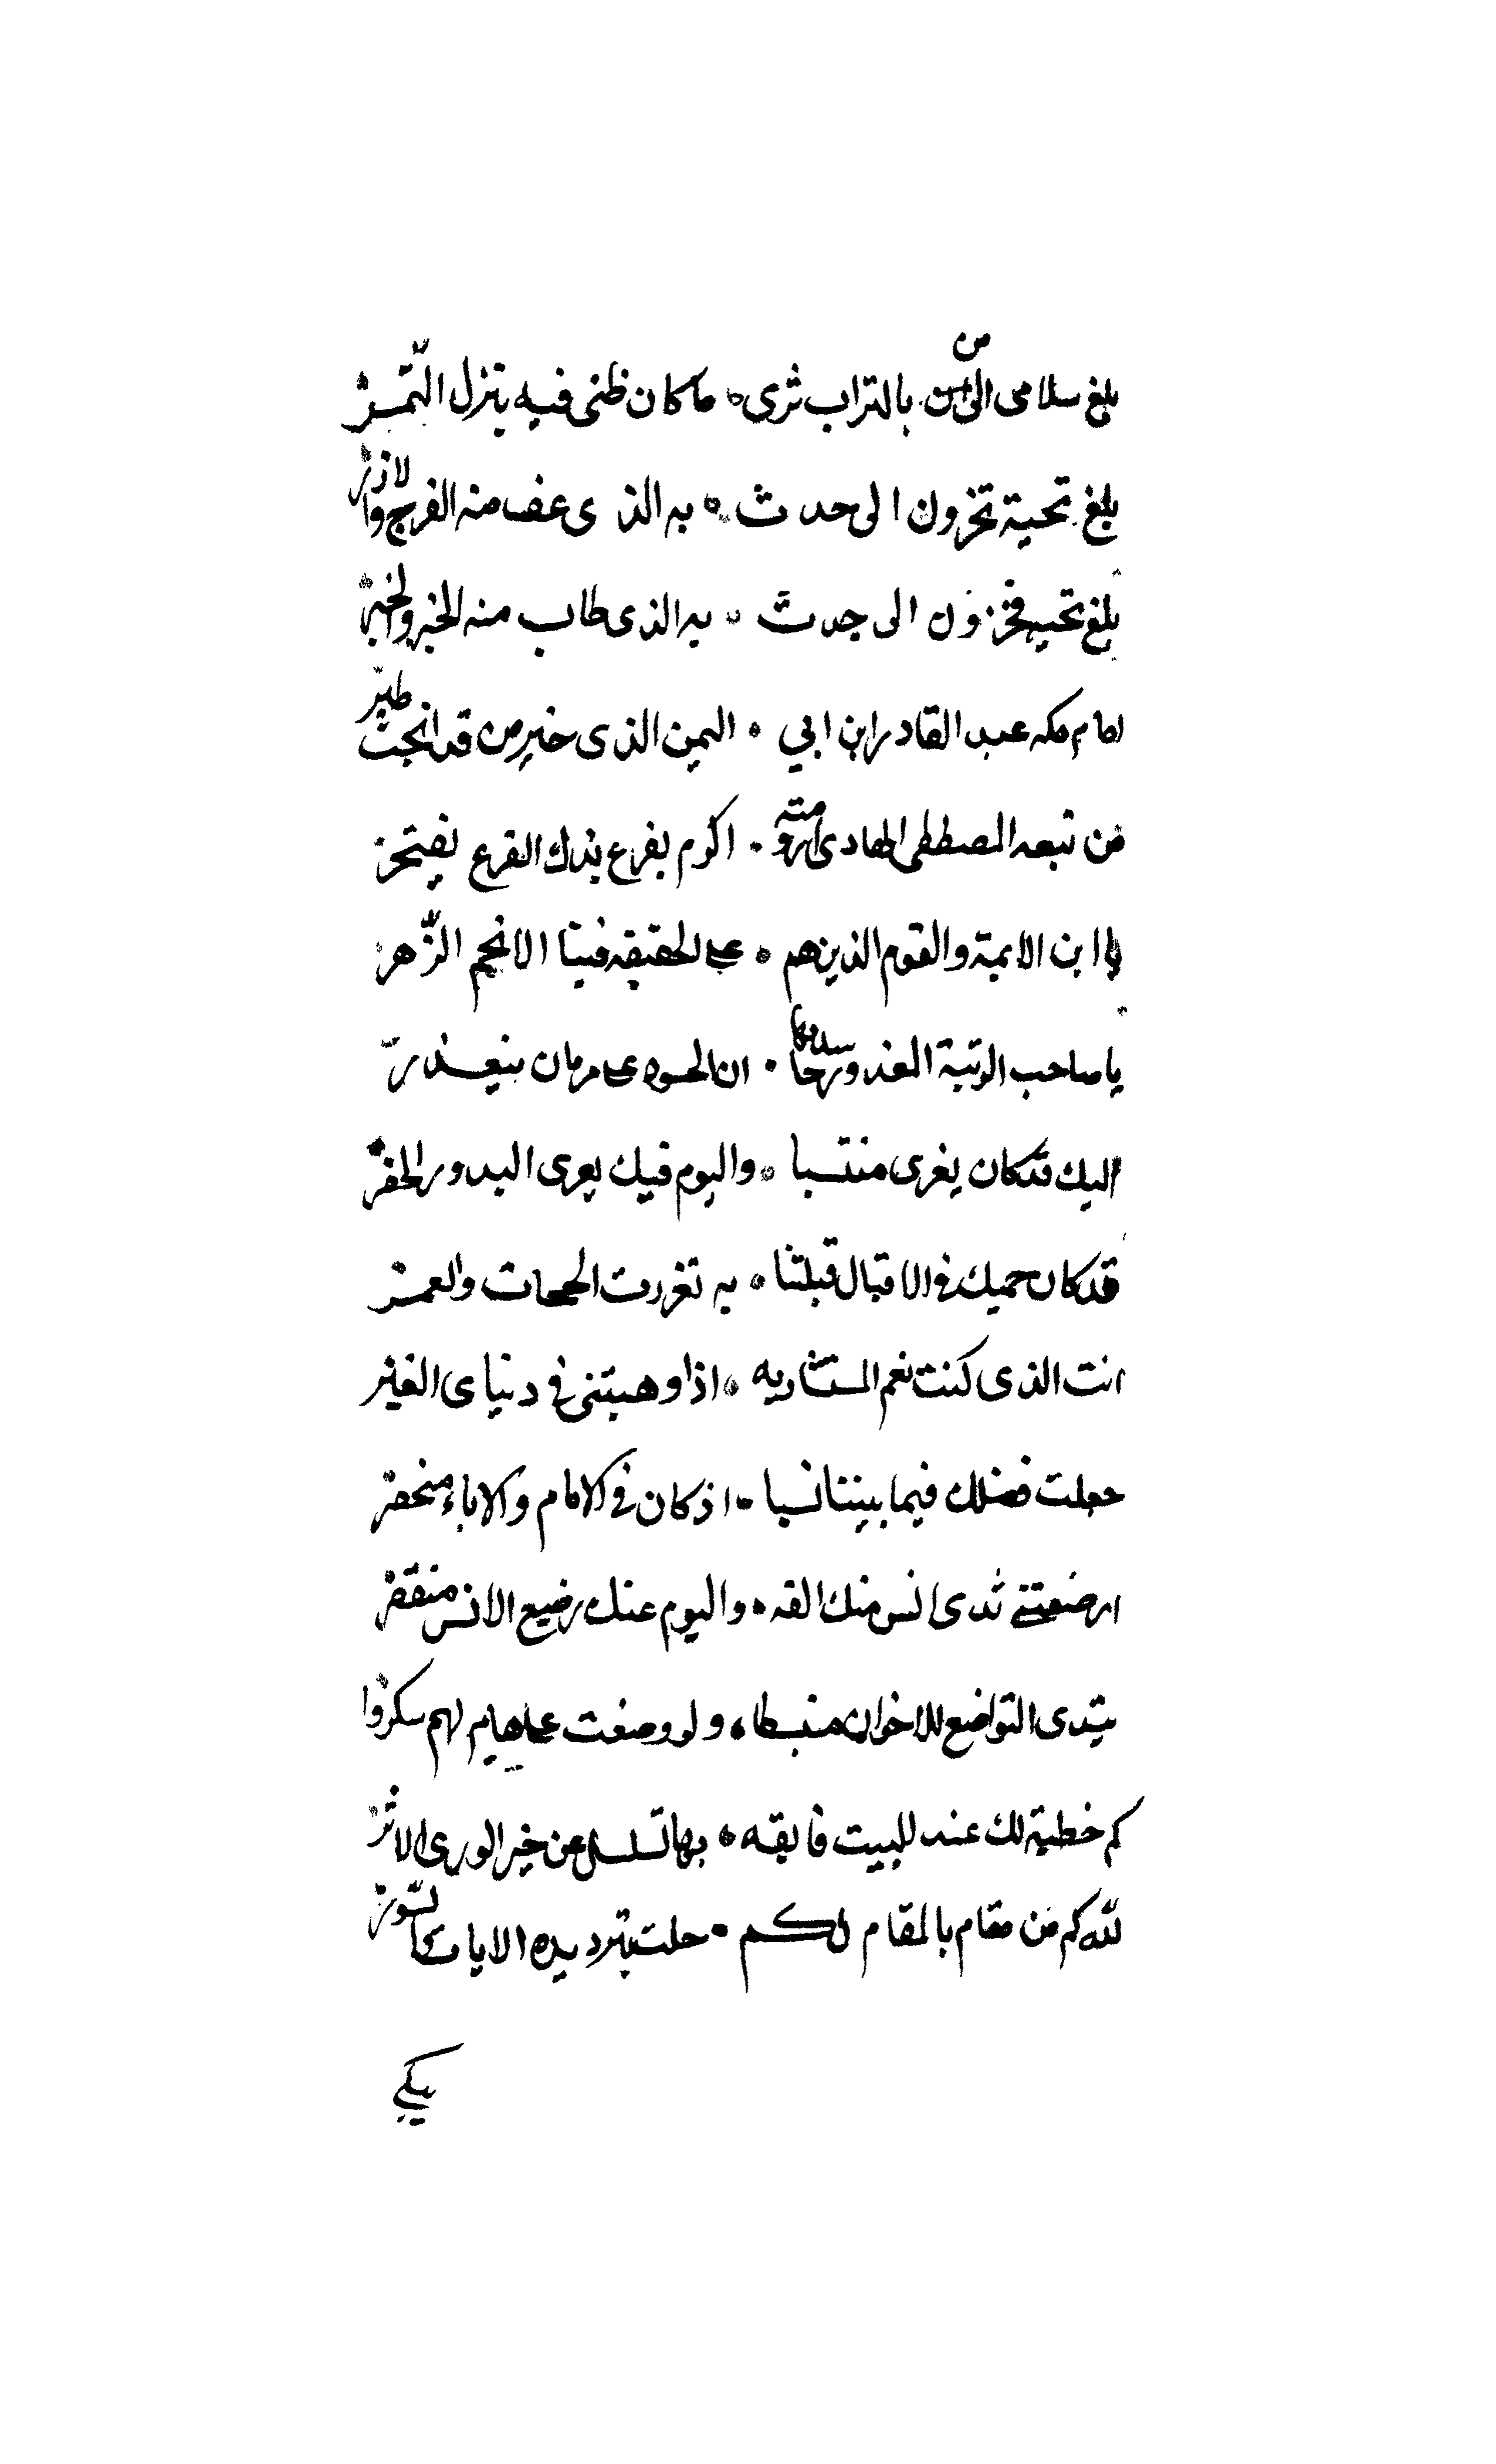 بلغ سلامى الى من بالتراب ثرى ه ما كان ظنى فيه ينزل القمر
بلغ تحية محزون الى حدث ه به الذى عف منه الفرج والازر
بلغ تحية محزون الى جدث ه به الذى طاب منه الخبر والخبر
امام مكه عبد القادر ابن ابي ه اليمن الذى خير من قد انجبت طبر
من نبعه المصطفى الهادى ارومته ه اكرم بفرع بذك الفرع يفتخر
يا ابن الايمة والقوم الذين هم ه على الحقيقه فينا الانجم الزهر
يا صاحب الرتبة المغدور ساكنها ه ان الحسود على
اليك قد كان يغرى منتسبا ه واليوم فيك يعرى البدو والحضر
قد كان حميك فى الاقبال قبلتنا ه به تغررت الحجات والعمر
انت الذى كنت نعم المستشار به ه اذا وهبتنى فى دنياى الغير
جعلت فضلك فيما بيننا نسبا ه اذ كان فى الامام والاباء منحصر
ارضعتنى ثدى انس منك القه ه واليوم عنك رضيع الانس منفقر
يبتدى التواضع للاخوان منبسطا ه ولو وضعت على هام لهم سكروا
كم خطبة لك عند البيت فايقه ه بها تسلسل عن خير الورى الاثر
لله كم من مقام بالمقام لكم ه حلت بترديده الايات والسور
يبكي